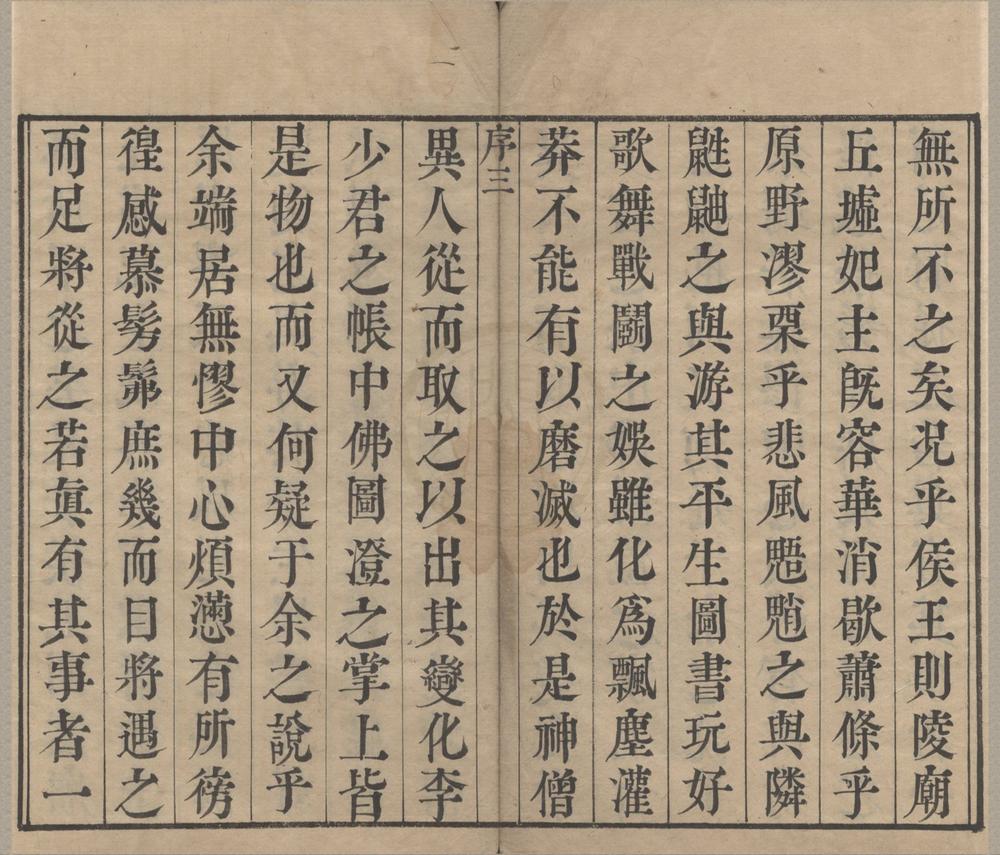 無所不之矣况乎侯王則陵廟
丘墟妃主旣容華消歇蕭條乎
原野漻栗乎悲風魍魎之與隣
鼪鼬之與游其平生圖書玩好
歌舞戰鬭之娛雖化爲飄塵灌
莽不能有以磨滅也於是神僧
序三
異人從而取之以出其變化李
少君之帳中佛圖澄之掌上皆
是物也而又何疑于余之說乎
余端居無憀中心煩懣有所徬
徨感慕髣髴庶幾而目將遇之
而足將從之若眞有其事者一